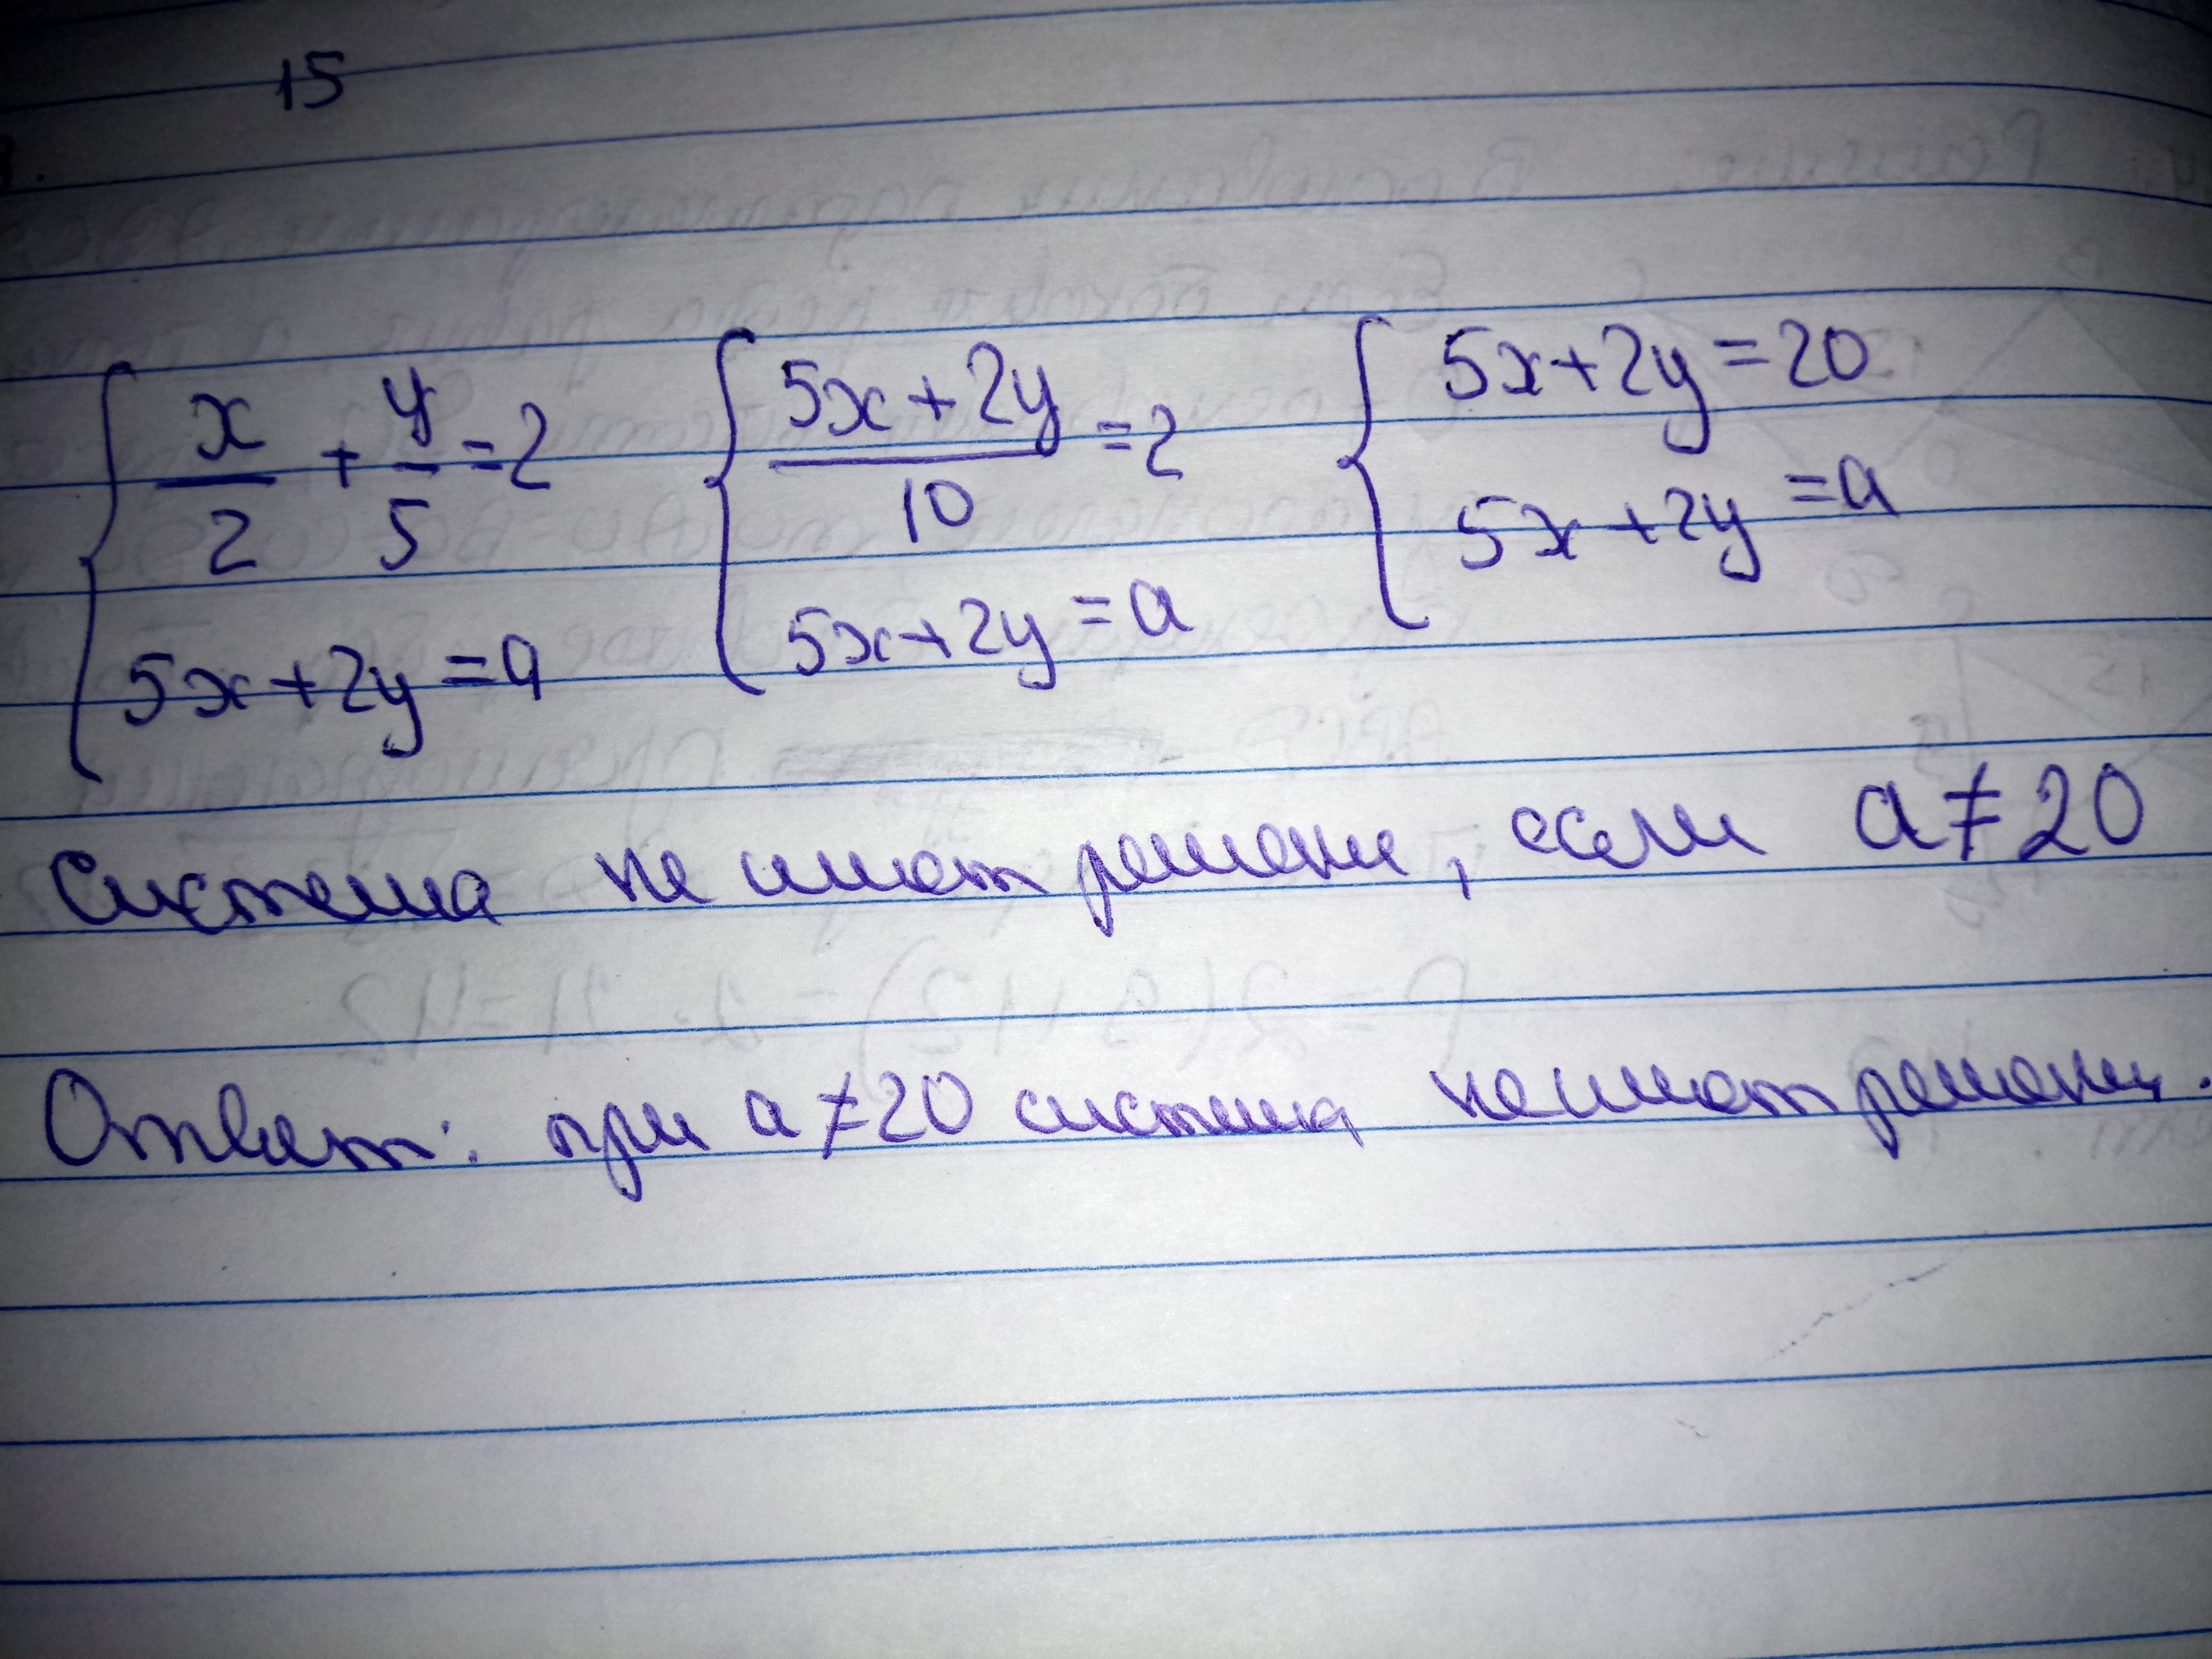 15
x/2 + y/5 = 2
5x+2y=a
(5x+2y)/10 = 2
5x+2y=a
5x+2y=20
5x+2y=a
система не имеет решени, если a≠20
Ответ: при a≠20 система не имеет решений.